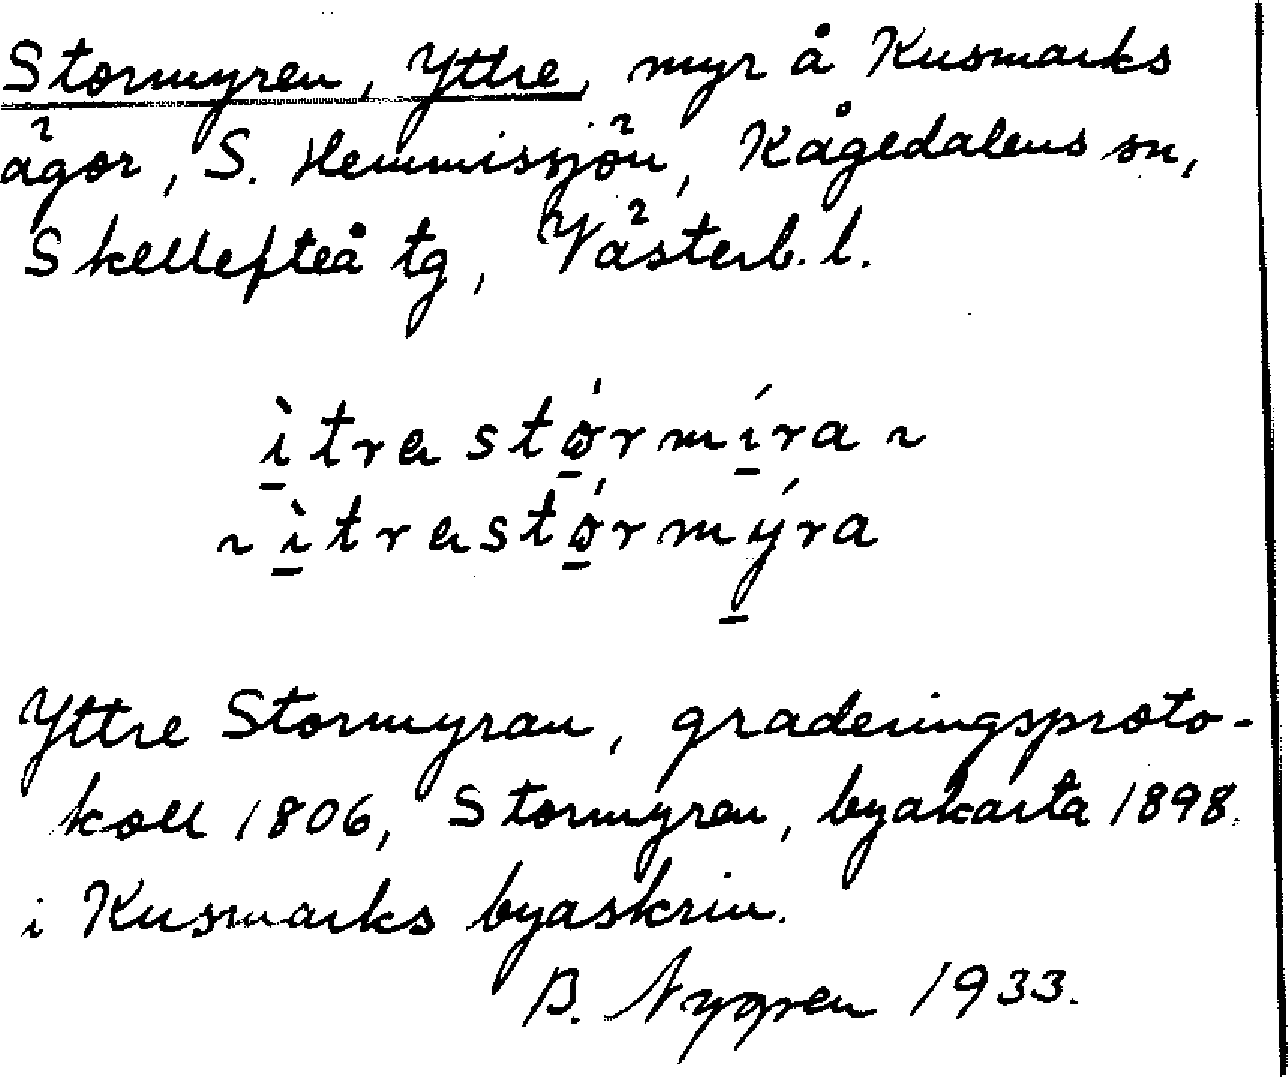 Stormyren, Yttre, myr å Kusmarks
ägor, S. Hemmissjön, Kågedalens sn,
Skellefteå tg, Västerb. l.
ìtra stǿrmíra ~
~ ìtra stǿrmýra
Yttre Stormyran, graderingsproto-
koll 1806, Stormyren, byakarta 1898
i Kusmarks byaskrin.
B. Nygren 1933.